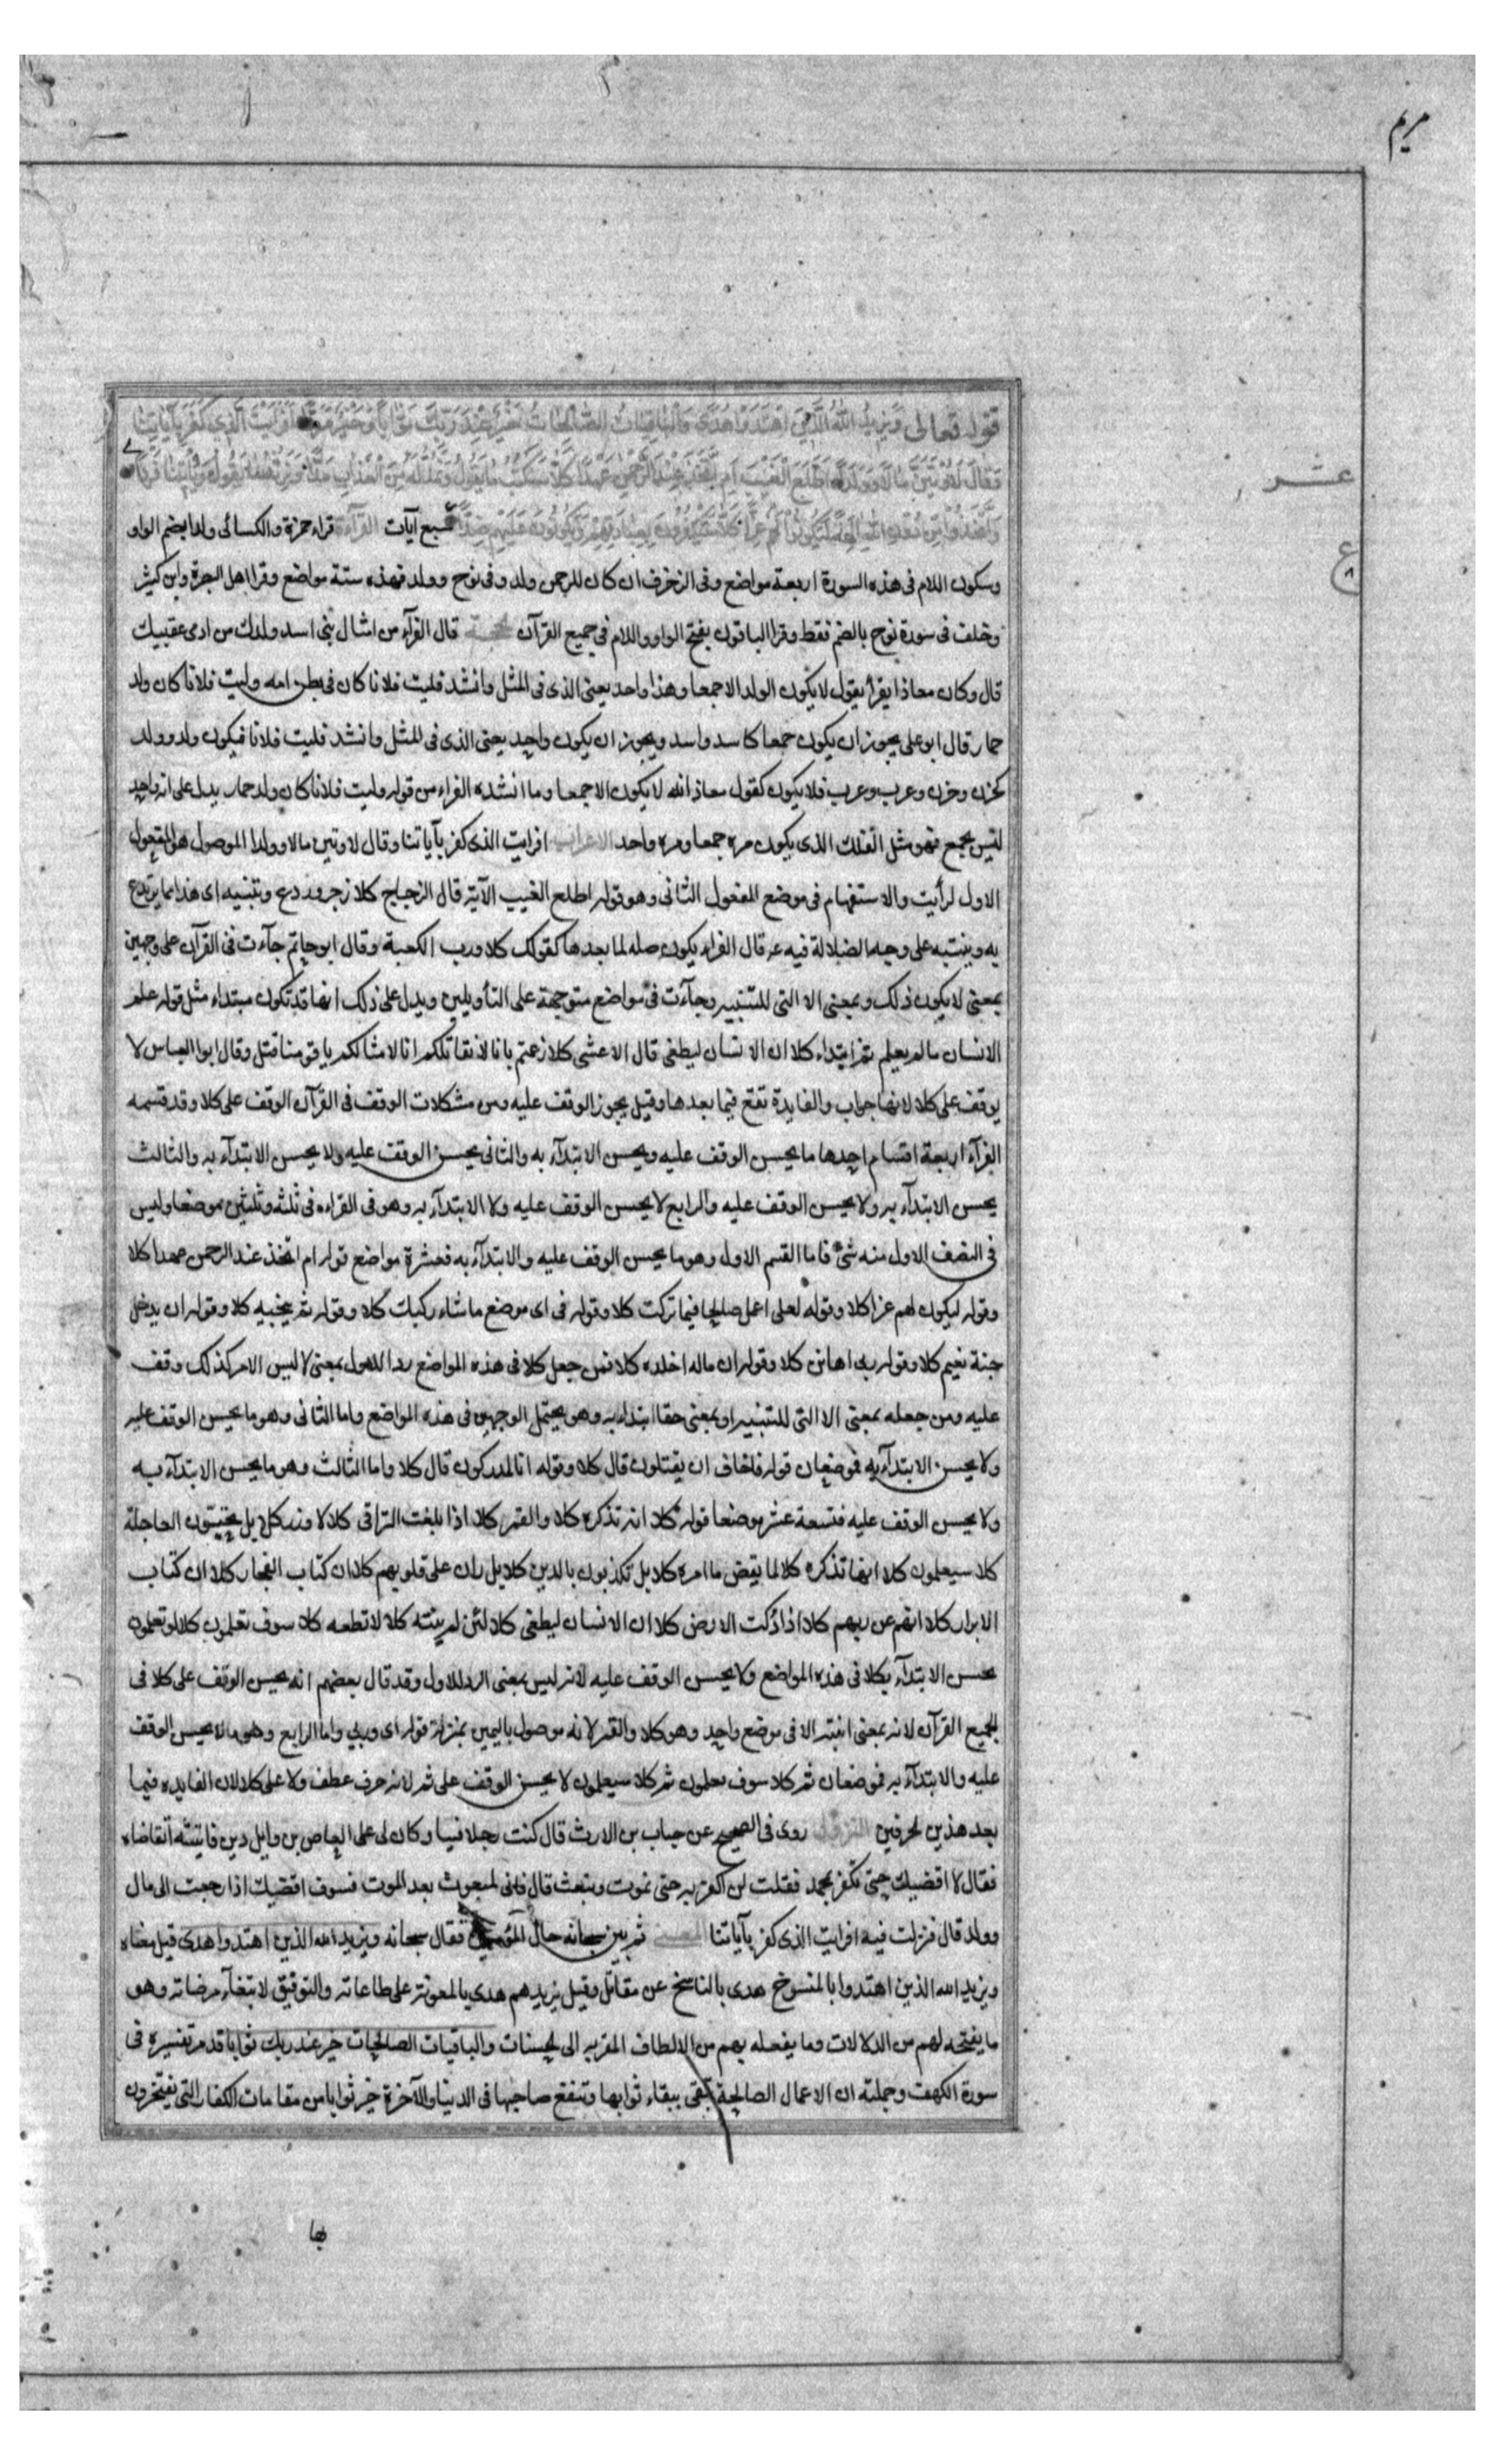 مريم
قوله تعالى وَيَزِيدُ اللهُ الَّذِينَ اهْتَدَوْا هُدًى وَالْبَاقِيَاتُ الصَّالِحَاتُ خَيْرٌ عِنْدَ رَبِّكَ ثَوَابًا وَخَيْرٌ مَرَدًّا اَفَرَاَيْتَ الَّذِي كَفَرَ بِآيَاتِنَا
وَقَالَ لَاُوتَيَنَّ مَالًا وَوَلَدًا اَطَّلَعَ الْغَيْبَ اَمِ اتَّخَذَ عِنْدَ الرَّحْمٰنِ عَهْدًا كَلَّا سَنَكْتُبُ مَا يَقُولُ وَنَمُدُّ لَهُ مِنَ الْعَذَابِ مَدًّا وَنَرِثُهُ مَا يَقُولُ وَيَأْتِينَا فَرْدًا
عشر
وَاتَّخَذُوا مِنْ دُونِ اللهِ آلِهَةً لِيَكُونُوا لَهُمْ عِزًّا كَلَّا سَيَكْفُرُونَ بِعِبَادَتِهِمْ وَيَكُونُونَ عَلَيْهِمْ ضِدًّا سبع آيات القرآءة قراء حمزة والكسائى ولدا بضم الواو
ع
وسكون اللام فى هذه السورة اربعة مواضع وفى الزخرف ان كان للرحمن ولد وفى نوح وولد فهذه ستة مواضع وقرا اهل البصرة وابن كثير
وخلف فى سورة نوح بالضم فقط وقرا الباقون بفتح الواو واللام فى جميع القرآن الحجة قال الفرآء من امثال بنى اسد ولدك من ادمى عقبيك
قال وكان معاذ يقرأ يقول لا يكون الولد الا جمعا وهذا واحد يعنى الذى فى المثل وانشد فليت فلانا كان فى بطن امه وليت فلانا كان ولد
حمار قال ابو على يجوز ان يكون جمعا كاسد واسد ويجوز ان يكون واحد يعنى الذى فى المثل وانشد فليت فلانا فيكون ولد وولد
كحزن وحزن وعرب وعرب فلا يكون كقول معاذ انه لا يكون الا جمعا وما انشده الفراء من قوله وليت فلانا كان ولد حمار يدل على انه واحد
ليس بجمع فهو مثل الفلك الذى يكون مرة جمعا ومرة واحد الاعراب افرايت الذى كفر بآياتنا وقال لاوتين مالا وولدا الموصول هو المفعول
الاول لرأيت والاستفهام فى موضع المفعول الثانى وهو قوله اطلع الغيب الآية قال الزجاج كلا زجر وردع وتنبيه اى هذا مما يرتدع
به وينتبه على وجه الضلالة فيه قال الفراء يكون صله لما بعدها كقولك كلا ورب الكعبة وقال ابو حاتم جآءت فى القرآن على وجهين
بمعنى لا يكون ذلك وبمعنى الا التى للتنبيه وجآءت فى مواضع متوجهة على التأويلين ويدل على ذلك انها قد تكون مبتداء مثل قوله علم
الانسان مالم يعلم ثم ابتداء كلا ان الانسان ليطغى قال الاعشى كلا زعمتم بانا لا نقاتلكم انا لامثالكم يا قومنا قتل وقال ابو العباس لا
يوقف على كلا لانها جواب والفايدة تقع فيما بعدها وقيل يجوز الوقف عليه ومن مشكلات الوقف فى القرآن الوقف على كلا وقد قسمه
القرآء اربعة اقسام احدها ما يحسن الوقف عليه ويحسن الابتدآء به والثانى يحسن الوقف عليه ولا يحسن الابتدآء به والثالث
يحسن الابتدآء به ولا يحسن الوقف عليه والرابع لا يحسن الوقف عليه ولا الابتدآء به وهو فى القراءه فى ثلثه وثلثين موضعا وليس
فى النصف الاول منه شئ فاما القسم الاول وهو ما يحسن الوقف عليه والابتدآء به فعشرة مواضع قوله ام اتخذ عند الرحمن عهدا كلا
وقوله ليكون لهم عزا كلا وقوله لعلى اعمل صالحا فيما تركت كلا وقوله فى اى موضع ماشاء ركبك كلا وقوله ثم ينجيه كلا وقوله ان يدخل
جنة نعيم كلا وقوله ربى اهانن كلا وقوله ان ماله اخلده كلا فمن جعل كلا فى هذه المواضع ردا للاول بمعنى لا ليس الامر كذلك وقف
عليه ومن جعله بمعنى الا التى للتنبيه او بمعنى حقا ابتداء به وهو يحتمل الوجهين فى هذه المواضع واما الثانى وهو ما يحسن الوقف عليه
ولا يحسن الابتدآء به فموضعان قوله فاخاف ان يقتلون قال كلا وقوله انا لمدركون قال كلا واما الثالث وهو ما يحسن الابتدآء به
ولا يحسن الوقف عليه فتسعة عشر موضعا قوله كلا انه تذكره كلا والقمر كلا اذا بلغت التراقى كلا لا وزر كلا بل تحبون العاجلة
كلا سيعلمون كلا انها تذكره كلا لما يقض ما امره كلا بل تكذبون بالدين كلا بل ران على قلوبهم كلا ان كتاب الفجار كلا ان كتاب
الابرار كلا انهم عن ربهم كلا اذا دكت الارض كلا ان الانسان ليطغى كلا لئن لم ينته كلا لا تطعه كلا سوف تعلمون كلا لو تعلمون
يحسن الابتدآء بكلا فى هذه المواضع ولا يحسن الوقف عليه لانه ليس بمعنى الرد للاول وقد قال بعضهم انه يحسن الوقف على كلا فى
جميع القرآن لانه بمعنى انتبه الا فى موضع واحد وهو كلا والقمر لانه موصول باليمين بمنزلة قوله اى وربى واما الرابع وهو ما لا يحسن الوقف
عليه والابتدآء به فموضعان ثم كلا سوف تعلمون ثم كلا سيعلمون لا يحسن الوقف على ثم لانه حرف عطف ولا على كلا لان الفايده فيما
بعد هذين لحرفين النزول روى فى الصحيح عن خباب بن الارت قال كنت رجلا قينا وكان لى على العاص بن وايل دين فاتيته اتقاضاه
فقال لا اقضيك حتى تكفر بمحمد فقلت لن اكفر به حتى تموت وتبعث قال فانى لمبعوث بعد الموت فسوف اقضيك اذا رجعت الى مال
وولد قال فنزلت فيه افرايت الذى كفر بآياتنا المعنى ثم بين سبحانه حال المؤمنين فقال سبحانه ويزيد الله الذين اهتدوا هدى قيل معناه
ويزيد الله الذين اهتدوا بالمنسوخ هدى بالناسخ عن مقاتل وقيل يزيدهم هدى بالمعونة على طاعاته والتوفيق لابتغآء مرضاته وهو
ما يفتحه لهم من الدلالات وما يفعله بهم من الالطاف المقربه الى لحسنات والباقيات الصالحات خير عند ربك ثوابا قد مر تفسيره فى
سورة الكهف وجملته ان الاعمال الصالحة تبقى ببقاء ثوابها وتنفع صاحبها فى الدنيا والآخرة خير ثوابا من مقامات الكفار التى يفتخرون
بها